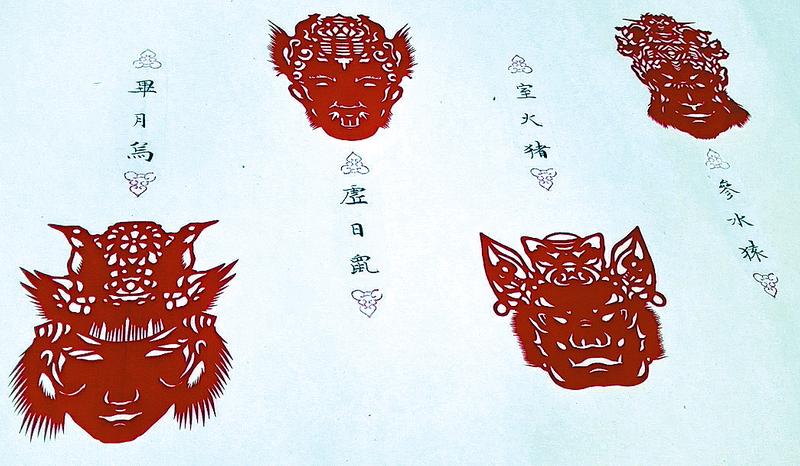 畢月烏
虛日鼠
室火猪
參水猿